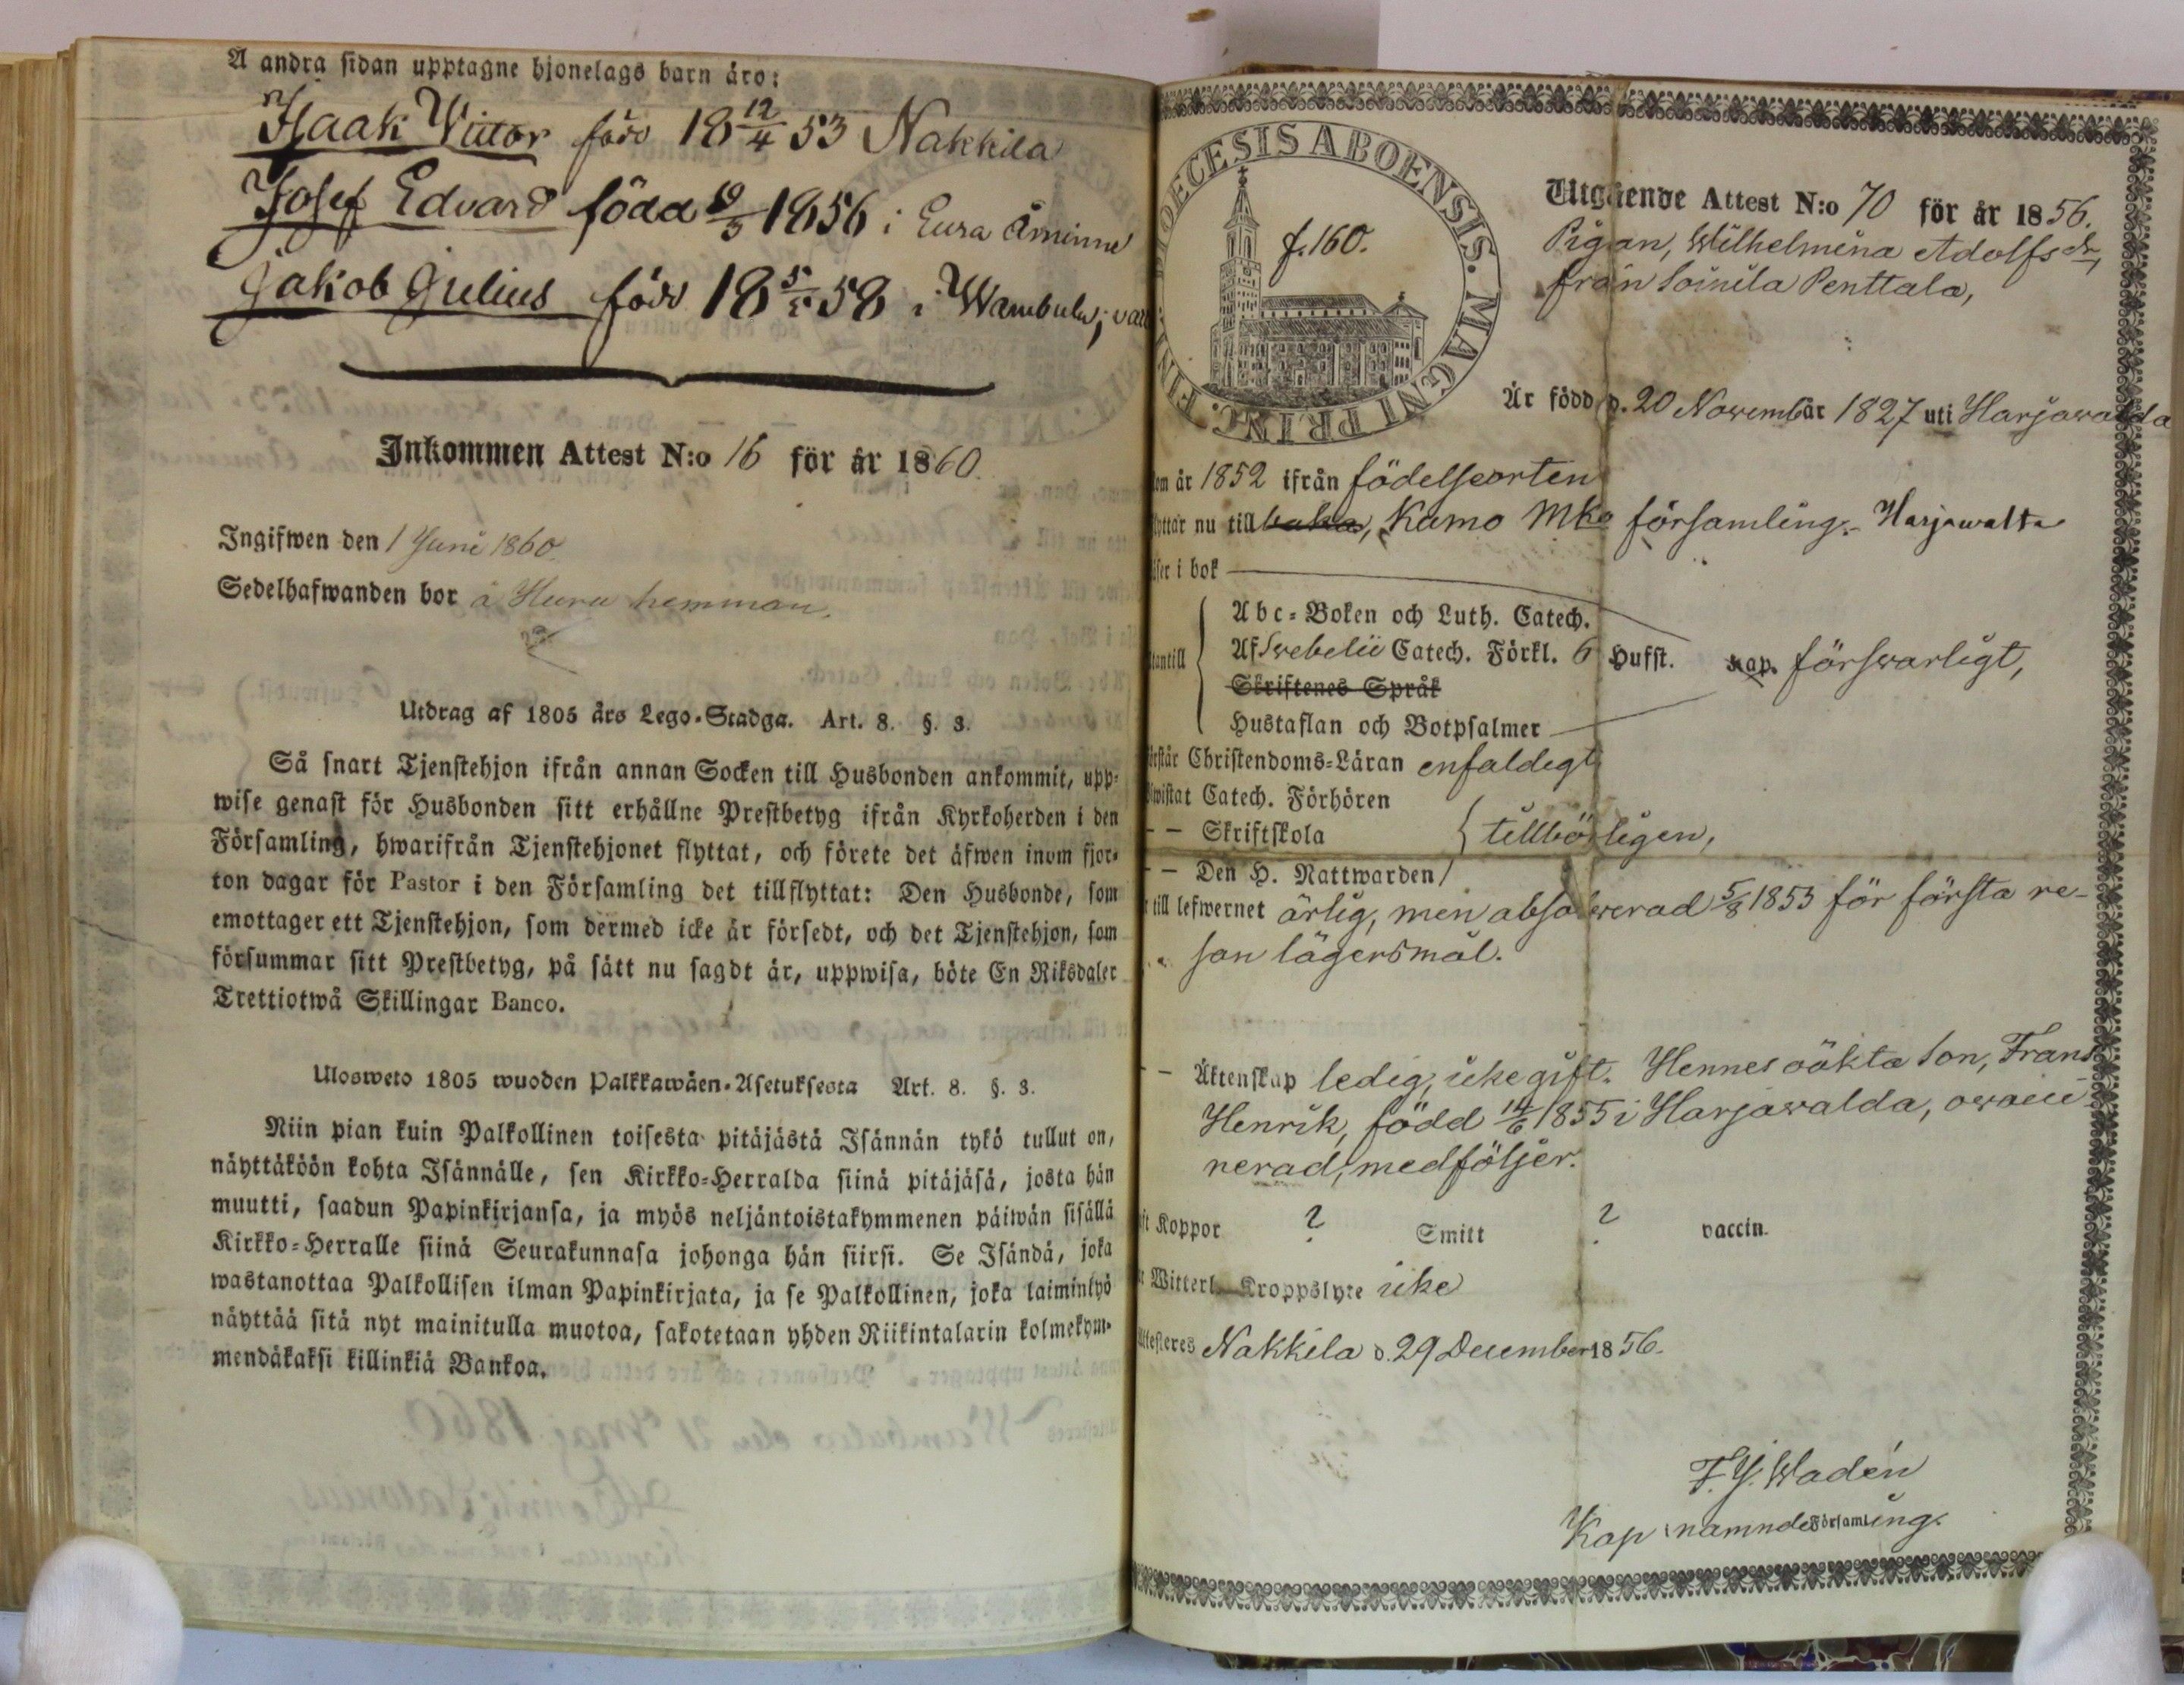 Å andra sidan upptagne hjonelags barn äro:
Isaak Victor född 18 12/4 53 Nakkila
Josef Edvard född 19/3 1856 i Eura Åminne
Jakob Julius född 18 5/5 58 i Wambula;
Inkommen Attest N:o 16 för år 1860.
Ingifwen den 1 Juni 1860
Sedelhafwanden bor å Huru hemman.
Utdrag af 1805 års Lego-Stadga. Art. 8. §. 3.
Så snart Tjenstehjon ifrån annan Socken till Husbonden ankommit, upp-
wise genast för Husbonden sitt erhållne Prestbetyg ifrån Kyrkoherden i den
Församling, hwarifrån Tjenstehjonet flyttat, och förete det äfwen inom fjor-
ton dagar för Pastor i den Församling det tillflyttat: Den Husbonde, som
emottager ett Tjenstehjon, som dermed icke är försedt, och det Tjenstehjon, som
försummar sitt Prestbetyg, på sätt nu sagdt är, uppwisa, böte En Riksdaler
Trettiotwå Skillingar Banco.
Ulosweto 1805 wuoden Palkkawäen-Asetuksesta Art. 8. §. 3.
Niin pian kuin Palkollinen toisesta pitäjästä Isännän tykö tullut on,
näyttäköön kohta Isännälle, sen Kirkko-Herralda siinä pitäjäsä, josta hän
muutti, saadun Papinkirjansa, ja myös neljäntoistakymmenen päiwän sisällä
Kirkko-Herralle siinä Seurakunnasa johonga hän siirsi. Se Isändä, joka
wastanottaa Palkollisen ilman Papinkirjata, ja se Palkollinen, joka laiminlyö
näyttää sitä nyt mainitulla muotoa, sakotetaan yhden Riikintalarin kolmekym-
mendäkaksi killinkiä Bankoa.
DIOECESIS ABOENSIS. MAGNI PRINC. FIN
f. 160.
Utgående Attest N:o 70 för år 1856.
Pigan, Wilhelmina Adolfsdr,
från Soinila Penttala,
Är född d. 20 November 1827 uti Harjawalda
kom år 1852 ifrån födelseorten
flyttar nu till baka, Kamo Mko församling. Harjawalta
läser i bok
Abc-Boken och Luth. Catech.
utantill Af Swebelii Catech. Förkl. 6 Hufst. kap. förswarligt,
Skriftenes Språk
Hustaflan och Botpsalmer
förstår Christendoms-Läran enfaldigt
bewistat Catech. Förhören
— — Skriftskola tillbörligen,
— — Den H. Nattwarden
är till lefwernet ärlig, men absolverad 5/8 1853 för första re-
san lägersmål.
— — Äktenskap ledig, icke gift. Hennes oäkta son, Frans
Henrik, född 14/6 1855 i Harjawalda, ovacci-
nerad, medföljer.
haft Koppor ? Smitt ? vaccin.
Witterl. Kroppslyte icke
Attesteres Nakkila d. 29 December 1856.
F. J. Wadén
Kap i namnde Församling.